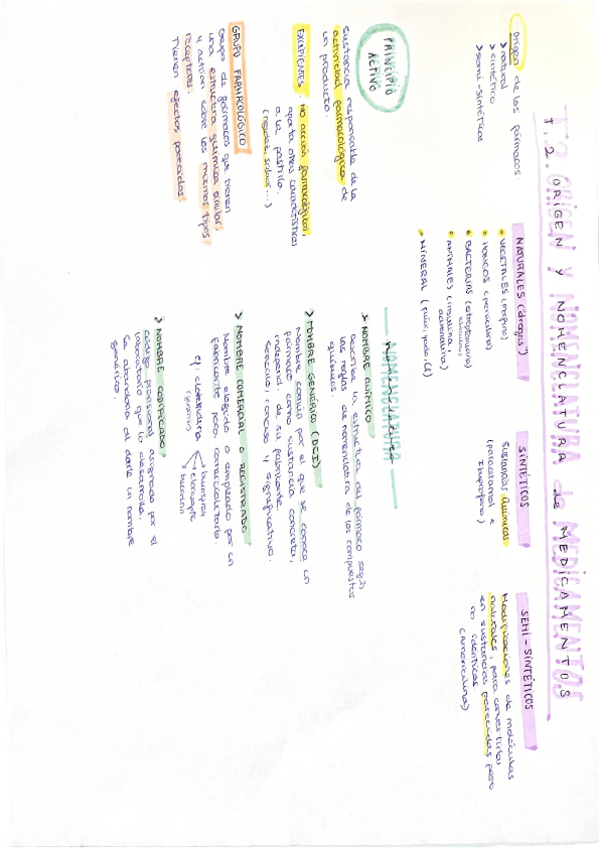 T.2. ORIGEN Y NOMENCLATURA de MEDICAMENTOS
Origen de los fármacos:
> natural
> sintético
> semi-sintéticos
NATURALES ("drogas")
VEGETALES (morfina)
HONGOS (penicilina)
BACTERIAS (estreptomicina)
ANIMALES (insulina,
adrenalina)
MINERAL (flúor, yodo,
SINTÉTICOS
Sustancias químicas
(paracetamol e
Ibuprofeno)
SEMI-SINTÉTICOS
Modificaciones de moléculas
naturales, para convertirlas
en sustancias parecidas pero
no idénticas
PRINCIPIO
ACTIVO
Sustancia responsable de la
actividad farmacológica de
un producto.
EXCIPIENTES: No acción farmacológica,
aporta otras características
a la pastilla.
GRUPO FARMACOLÓGICO
Grupo de fármacos que tienen
una estructura química similar,
y actúan sobre los mismos tipos
receptores.
Tienen efectos parecidos.
NOMENCLATURA
> NOMBRE QUÍMICO
describe la estructura del fármaco según
las reglas de nomenclatura de los compuestos
químicos.
> NOMBRE GENÉRICO (DCI)
Nombre común por el que se conoce un
fármaco como sustancia concreta,
independ. de su fabricante.
Sencillo, conciso y significativo.
> NOMBRE COMERCIAL O REGISTRADO
Nombre elegido o empleado por un
fabricante para comercializarlo.
ej:
(genérico)
> NOMBRE CODIFICADO
código provisional asignado por el
laboratorio que lo desarrolla.
Se abandona al darle un nombre
genérico.